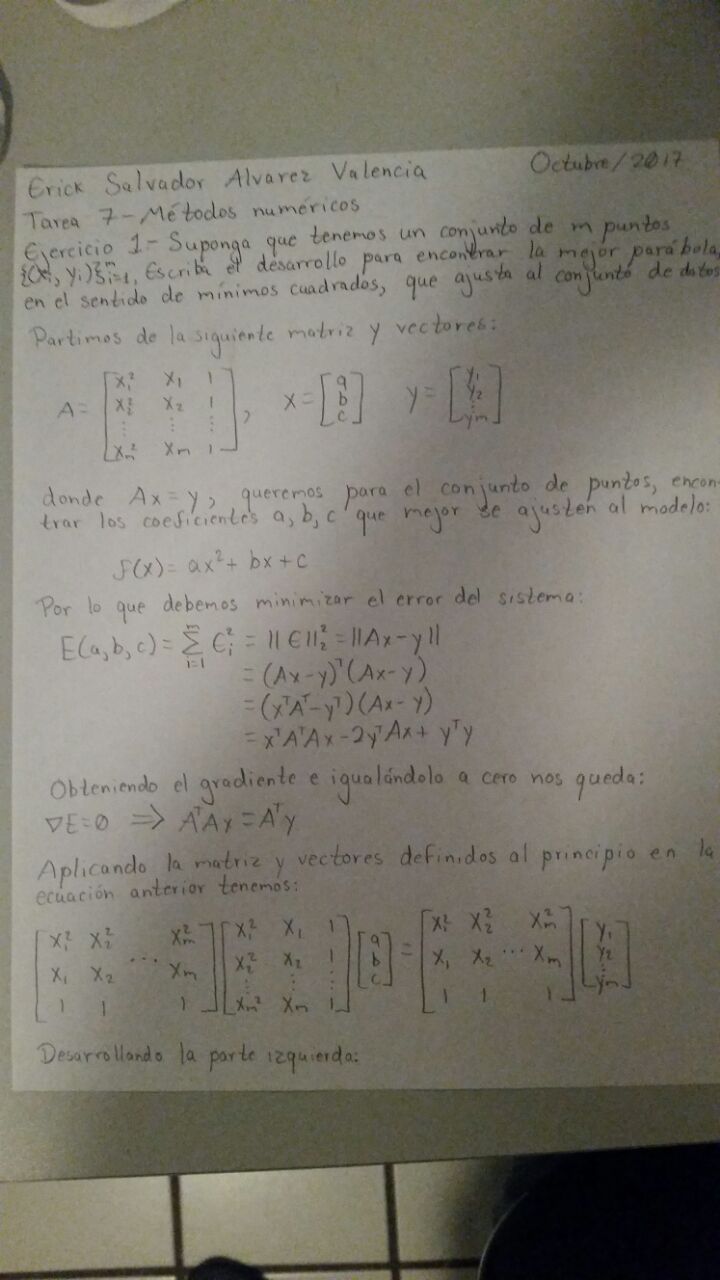 Erick Salvador Alvarez Valencia Octubre/2017
Tarea 7 - Métodos numéricos
Ejercicio 1 - Suponga que tenemos un conjunto de m puntos
{(xᵢ, yᵢ)}ᵢ₌₁ᵐ, Escriba el desarrollo para encontrar la mejor parábola,
en el sentido de mínimos cuadrados, que ajusta al conjunto de datos
Partimos de la siguiente matriz y vectores:
A = [x₁² x₁ 1; x₂² x₂ 1; ⋮ ⋮ ⋮; xₘ² xₘ 1], x = [a; b; c] y = [y₁; y₂; ⋮; yₘ]
donde Ax = y, queremos para el conjunto de puntos, encon-
trar los coeficientes a, b, c que mejor se ajusten al modelo:
f(x) = ax² + bx + c
Por lo que debemos minimizar el error del sistema:
E(a, b, c) = Σᵢ₌₁ᵐ ∈ᵢ² = ||∈||₂² = ||Ax - y||
= (Ax - y)ᵀ(Ax - y)
= (xᵀAᵀ - yᵀ)(Ax - y)
= xᵀAᵀAx - 2yᵀAx + yᵀy
Obteniendo el gradiente e igualándolo a cero nos queda:
∇E = 0 ⟹ AᵀAx = Aᵀy
Aplicando la matriz y vectores definidos al principio en la
ecuación anterior tenemos:
[x₁² x₂² ⋯ xₘ²; x₁ x₂ ⋯ xₘ; 1 1 1] [x₁² x₁ 1; x₂² x₂ 1; ⋮ ⋮ ⋮; xₘ² xₘ 1] [a; b; c] = [x₁² x₂² xₘ²; x₁ x₂ ⋯ xₘ; 1 1 1] [y₁; y₂; ⋮; yₘ]
Desarrollando la parte izquierda: